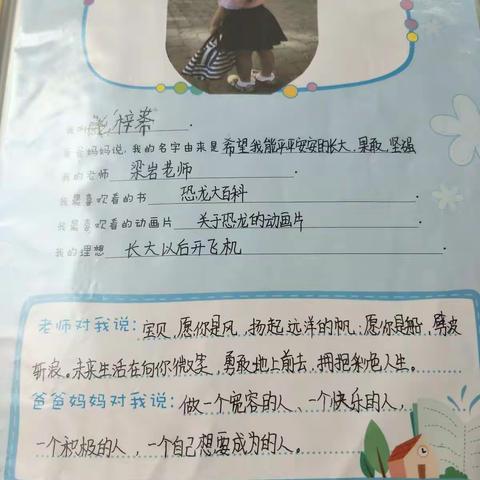 我叫 梓蓁
爸爸妈妈说，我的名字由来是 希望我能平平安安的长大、果敢、坚强
我的老师 梁岩老师
我最喜欢看的书 恐龙大百科
我最喜欢看的动画片 关于恐龙的动画片
我的理想 长大以后开飞机
老师对我说：宝贝，愿你是风，扬起远洋的帆；愿你是船，劈波
斩浪。未来生活在向你微笑，勇敢地上前去，拥抱彩色人生。
爸爸妈妈对我说：做一个宽容的人、一个快乐的人，
一个积极的人，一个自己想要成为的人。